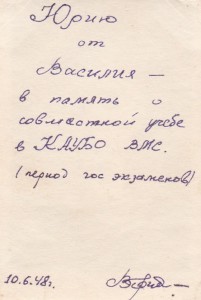 Юрию
от
Василия —
в память о
совместной учебе
в КАУБО ВМС.
(период гос экзаменов)
10.6.48г.